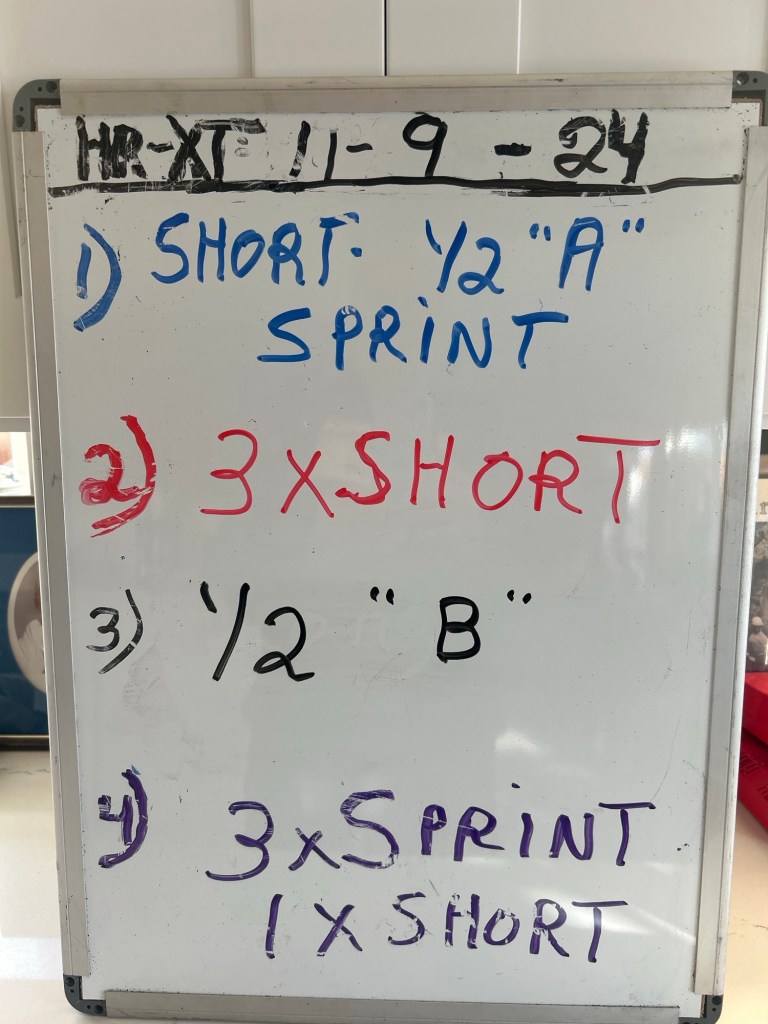 HR-XT: 11-9-24
1) SHORT: 1/2 "A"
SPRINT
2) 3 X SHORT
3) 1/2 "B"
4) 3 x SPRINT
1 X SHORT